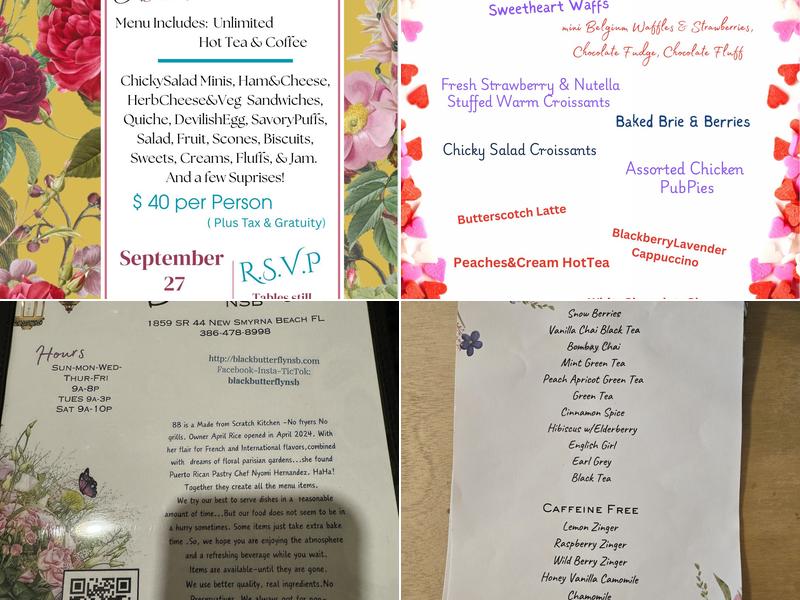 Menu Includes: Unlimited
Hot Tea & Coffee
ChickySalad Minis, Ham&Cheese,
HerbCheese&Veg Sandwiches,
Quiche, DevilishEgg, SavoryPuffs,
Salad, Fruit, Scones, Biscuits,
Sweets, Creams, Fluffs, & Jam.
And a few Suprises!
$ 40 per Person
( Plus Tax & Gratuity)
September
27
R.S.V.P
Tables still
Sweetheart Waffs
mini Belgium Waffles & Strawberries,
Chocolate Fudge, Chocolate Fluff
Fresh Strawberry & Nutella
Stuffed Warm Croissants
Baked Brie & Berries
Chicky Salad Croissants
Assorted Chicken
PubPies
Butterscotch Latte
BlackberryLavender
Cappuccino
Peaches&Cream HotTea
NSB
1859 SR 44 New Smyrna Beach FL
386-478-8998
Hours
Sun-Mon-Wed-
Thur-Fri
9a-8p
Tues 9a-3p
Sat 9a-10p
http://blackbutterflynsb.com
Facebook-Insta-TicTok:
blackbutterflynsb
BB is a Made from Scratch Kitchen -No fryers No
grills. Owner April Rice opened in April 2024. With
her flair for French and International flavors,combined
with dreams of floral parisian gardens...she found
Puerto Rican Pastry Chef Nyomi Hernandez. HaHa!
Together they create all the menu items.
We try our best to serve dishes in a reasonable
amount of time...But our food does not seem to be in
a hurry sometimes. Some items just take extra bake
time .So, we hope you are enjoying the atmosphere
and a refreshing beverage while you wait.
Items are available-until they are gone.
We use better quality, real ingredients.No
Preservatives. We always opt for non-
Snow Berries
Vanilla Chai Black Tea
Bombay Chai
Mint Green Tea
Peach Apricot Green Tea
Green Tea
Cinnamon Spice
Hibiscus w/Elderberry
English Girl
Earl Grey
Black Tea
Caffeine Free
Lemon Zinger
Raspberry Zinger
Wild Berry Zinger
Honey Vanilla Camomile
Chamomile